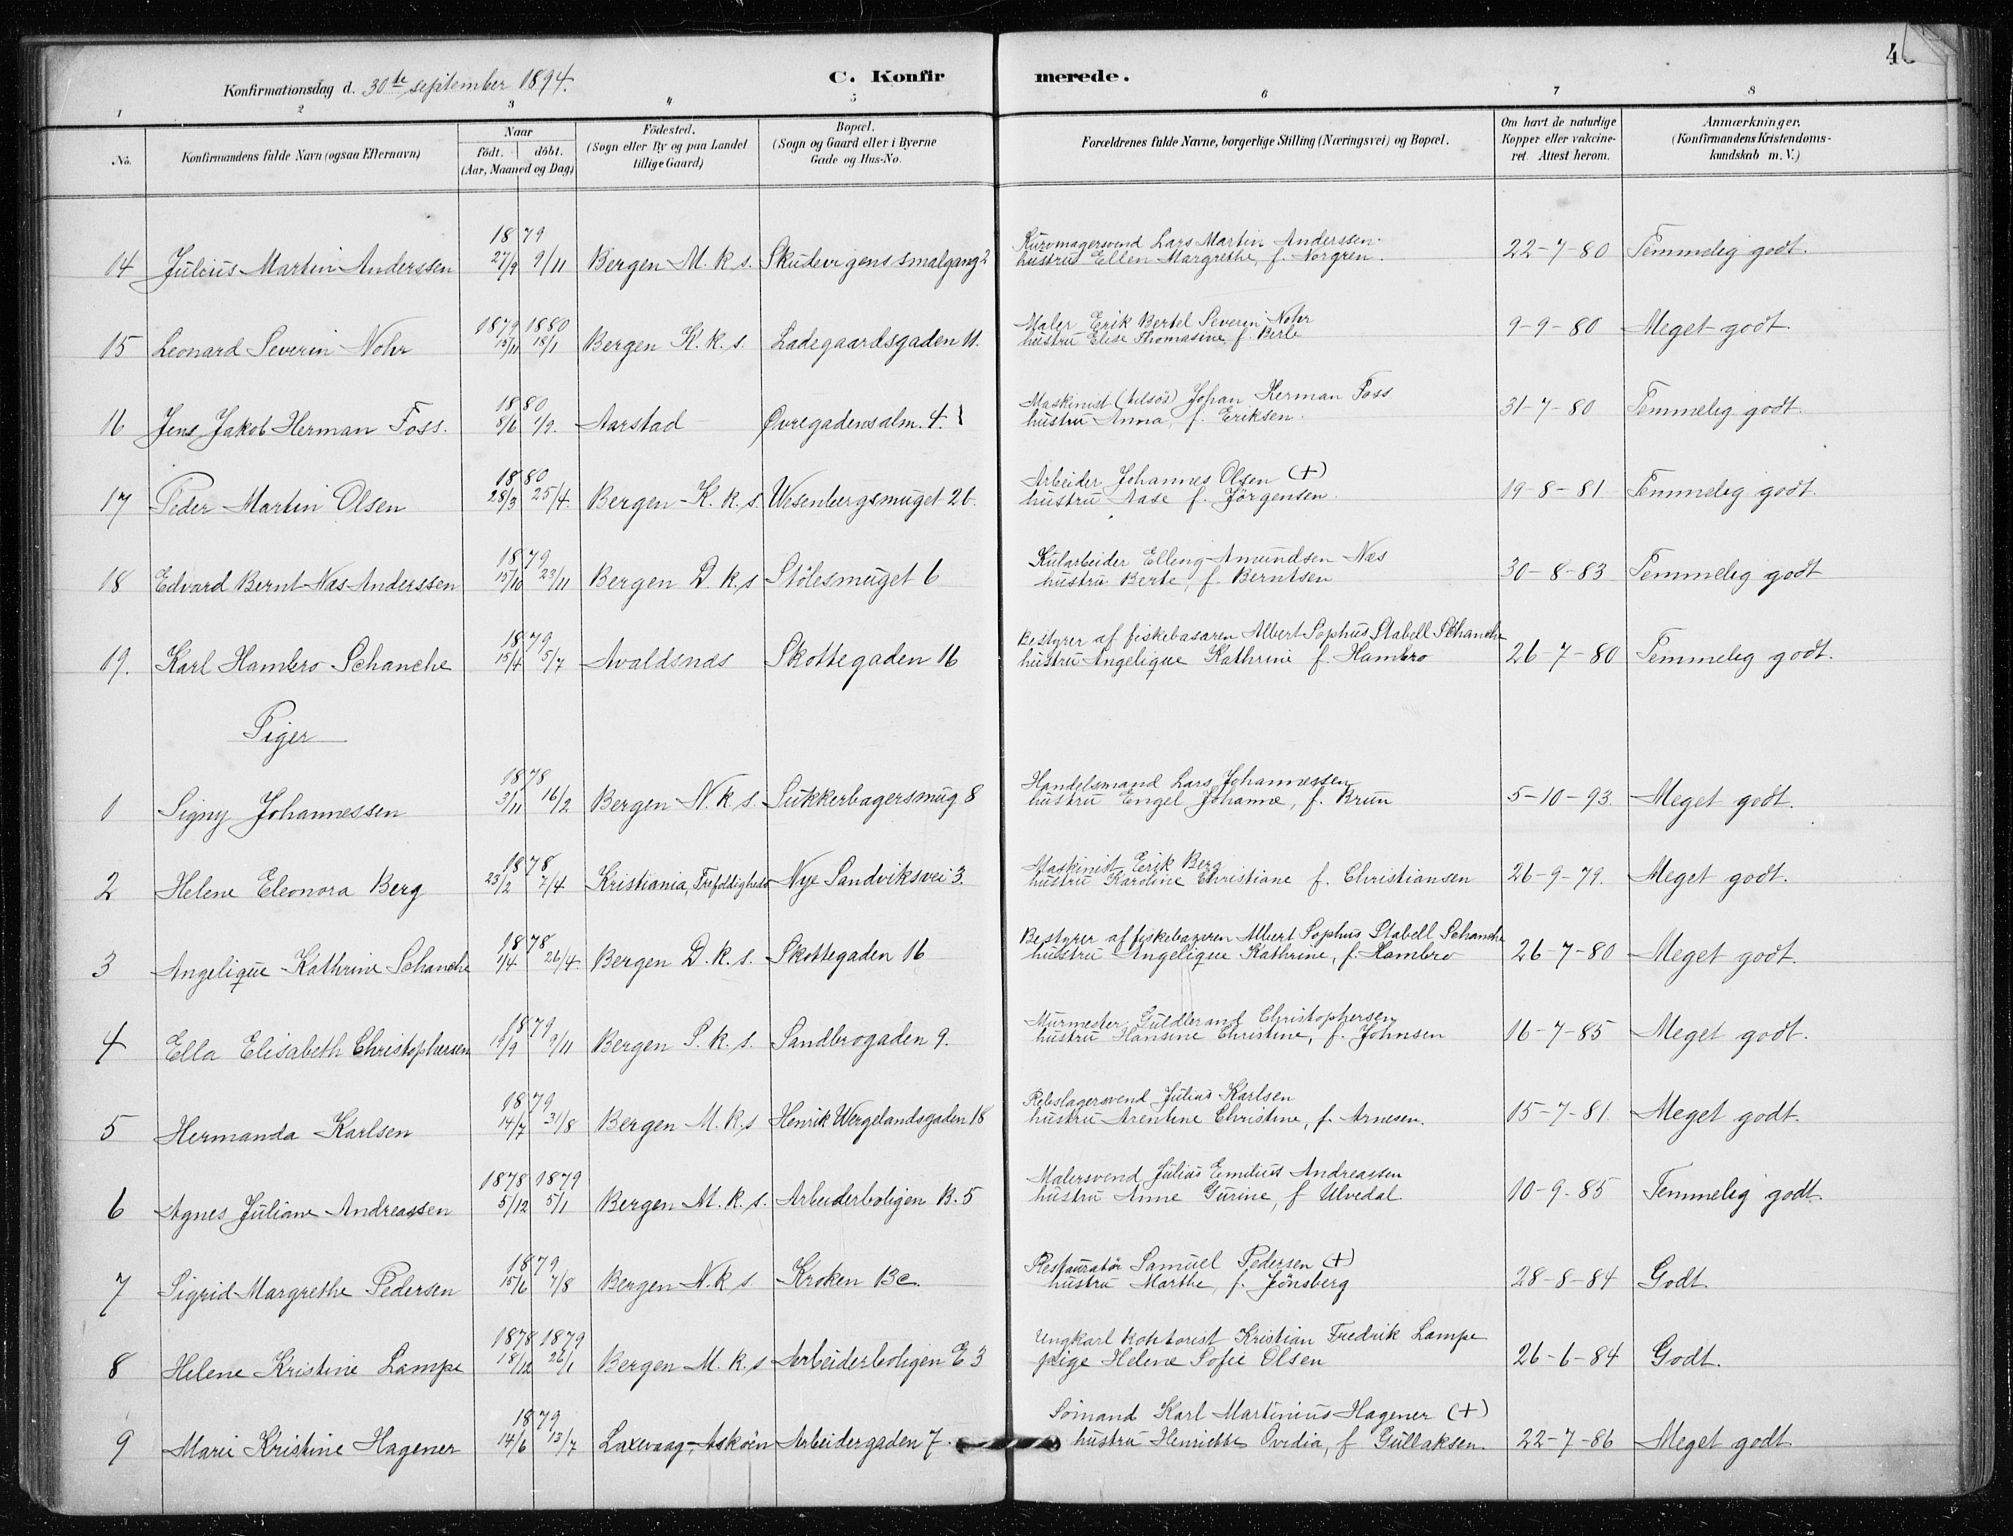 Konfirmationsdag d. 30te september 1894.
C. Konfir merede. 4
1 2 3 4 5 6 7 8
No. Konfirmandens fulde Navn (ogsaa Efternavn) Naar født. døbt. (Aar, Maaned og Dag) Fødested. (Sogn eller By og paa Landet tillige Gaard) Bopæl. (Sogn og Gaard eller i Byerne Gade og Hus-No. Forældrenes fulde Navne, borgerlige Stilling (Næringsvei) og Bopæl. Om havt de naturlige Kopper eller vakcineret. Attest herom. Anmærkninger. (Konfirmandens Kristendomskundskab m. V.)
18 79
14 Julius Martin Anderssen 27/9 9/11 Bergen M. k. s. Skudevigens smalgang 2 Kurvmagersvend Lars Martin Anderssen. 22-7-80 Temmelig godt.
hustru Ellen Margrethe, f. Norgren.
1879 1880
15 Leonard Severin Nohr 15/11 18/1 Bergen K. k. s. Ladegaardsgaden 11. Maler Erik Bertel Severin Nohr 9-9-80 Meget godt
hustru Elise Thomasine, f. Berle
18 80
16 Jens Jakob Herman Foss. 8/6 /9. Aarstad Øvregadensalm. 4. Maskinist (tilsøs) Johan Herman Foss 31-7-80 Temmelig godt.
hustru Anna, f. Eriksen.
18 80
17 Peder Martin Olsen 28/3 25/4. Bergen K. k. s. Wesenbergsmuget 2b. Arbeider Johannes Olsen (+) 19-8-81 Temmelig godt.
hustru Aase f. Jørgensen.
18 79
18 Edvard Bernt Næs Anderssen 15/10 23/11 Bergen D. k. s Stølesmuget 6 Kularbeider Elling Amundsen Næs 30-8-83 Temmelig godt
hustru Berte, f. Berntsen
18 79
19. Karl Hambro Schanche 15/4 5/7 Avaldsnæs Skottegaden 16 Bestyrer af fiskebasaren Albert Sophus Stabell Schanche 26-7-80 Temmelig godt.
hustru Angelique Kathrine f. Hambro
Piger
18 78
1 Signy Johannessen 3/11 16/2 Bergen N. k. s. Sukkerbagersmug 8 Handelsmand Lars Johannessen 5-10-93. Meget godt.
hustru Engel Johanne, f. Brun
18 78
2 Helene Eleonora Berg 23/2 7/4 Kristiania, Trefoldigheds Nye Sandviksvei 3. Maskinist Erik Berg 26-9-79. Meget godt.
hustru Karoline Christiane f. Christiansen
18 78
3 Angelique Kathrine Schanche 1/4 26/4. Bergen D. k. s. Skottegaden 16 Bestyrer af fiskebazaren Albert Sophus Stabell Schanche 26-7-80 Meget godt.
hustru Angelique Kathrine, f. Hambro
18 79
4 Ella Elisabeth Christophersen 19/9 9/11 Bergen D. k. s. Sandbrogaden 9. Murmester Guldbrand Christophersen 16-7-85 Meget godt.
hustru Hansine Christine, f. Johnsen
18 79
5 Hermanda Karlsen 14/7 31/8 Bergen M. k. s Henrik Wergelandsgaden 18 Rebslagersvend Julius Karlsen 15-7-81. Meget godt.
hustru Arentine Christine, f. Arnesen.
1878 1879
6 Agnes Juliane Andreassen 5/12 5/1 Bergen M. k. s. Arbeiderboligen B. 5 Malersvend Julius Emelius Andreassen 10-9-85 Temmelig godt.
hustru Anne Gurine, f Ulvedal
18 79
7 Sigrid Margrethe Pedersen 15/6 7/8 Bergen N. k s Kroken 13c. Restauratør Samuel Pedersen (+) 28-8-84 Godt
hustru Marthe, f. Jönsberg
1878 1879
8 Helene Kristine Lampe 18/12 26/1 Bergen M. k. s Arbeiderboligen E 3 Ungkarl kontorist Kristian Fredrik Lampe 26-6-84 Godt.
pige Helene Sofie Olsen
18 79
9 Marie Kristine Hagener 14/6 13/7 Laxevaag, Askøen Arbeidergaden 7. Sømand Karl Martinius Hagener (+) 22-7-86 Meget godt
hustru Henriette Ovidia, f Gullaksen.